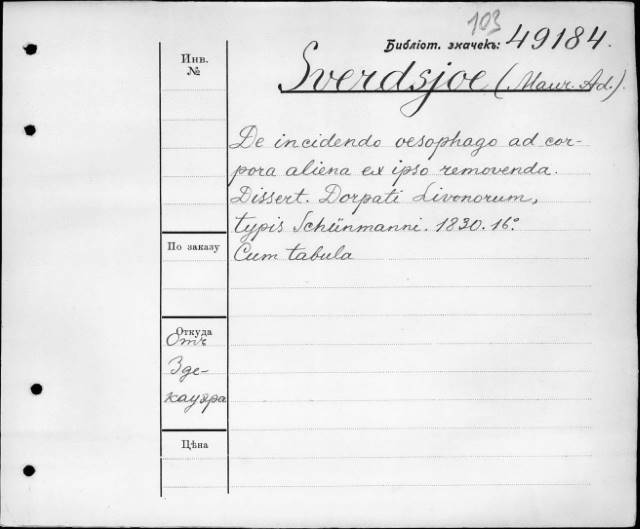 103
Библіот. значекъ: 49184.
Sverdsjoe (Maur. Ad.).
Инв.
№
De incidendo oesophago ad cor-
pora aliena ex ipso removenda.
Dissert. Dorpati Livonorum,
typis Schünmanni. 1830. 16°.
Cum tabula
По заказу
Откуда
Отъ
Зде-
кауэра
Цѣна